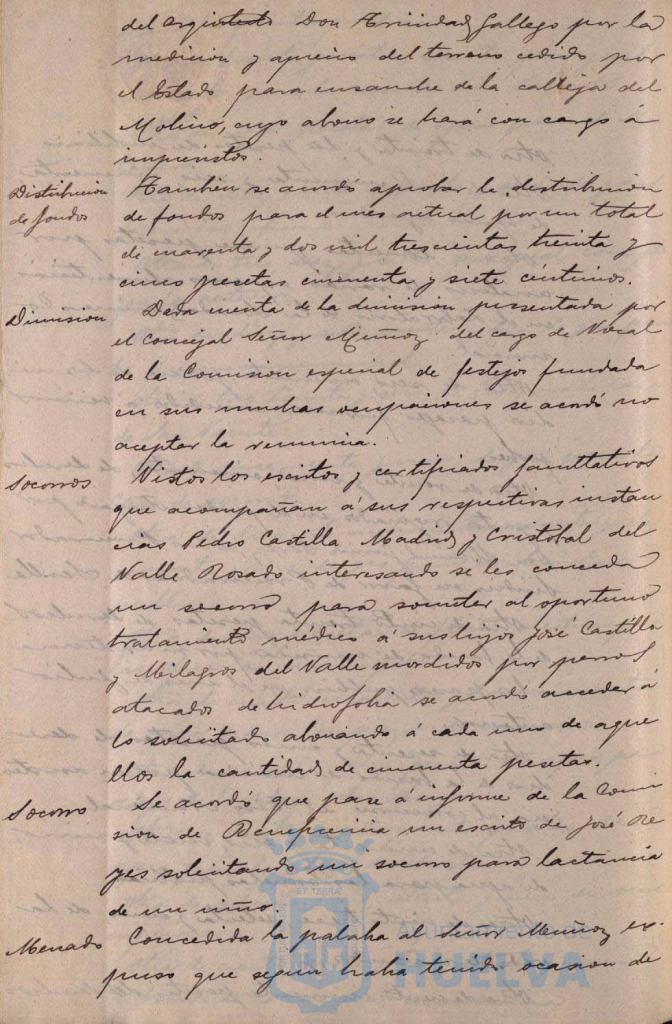 del arquitecto Don Trinidad Gallego por la
medicion y aprecio del terreno cedido por
el Estado para ensanche de la calleja del
Molino, cuyo abono se hará con cargo á
imprevistos.
Distribucion de fondos
Tambien se acordó aprobar la distribucion
de fondos para el mes actual por un total
de cuarenta y dos mil trescientas treinta y
cinco pesetas cincuenta y siete céntimos.
Dimision
Dada cuenta de la dimision presentada por
el concejal Señor Muñoz del cargo de Vocal
de la Comision especial de festejos fundada
en sus muchas ocupaciones se acordó no
aceptar la renuncia.
Socorros
Vistos los escritos y certificados facultativos
que acompañan á sus respectivas instan
cias Pedro Castilla Madrid y Cristobal del
Valle Rosado interesando se les conceda
un socorro para someter al oportuno
tratamiento médico á sus hijos José Castilla
y Milagros del Valle mordidos por perros
atacados de hidrofobia se acordó acceder á
lo solicitado abonando á cada uno de aque
llos la cantidad de cincuenta pesetas.
Socorro
Se acordó que pase á informe de la Comi
sion de Beneficencia un escrito de José Re
yes solicitando un socorro para lactancia
de un niño.
Mercado
Concedida la palabra al Señor Muñoz ex-
puso que segun habia tenido ocasion de
HUELVA